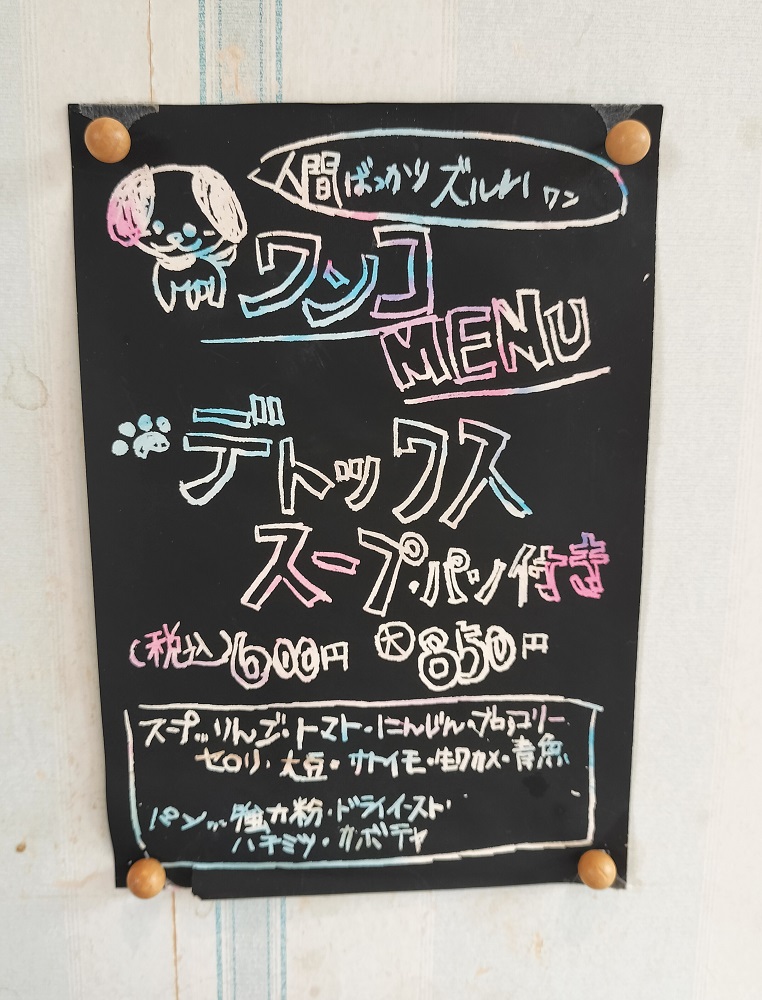 人間ばっかりズルいワン
ワンコ
MENU
デトックス
スープ・パン付き
(税込)600円 大850円
スープ…りんご・トマト・にんじん・ブロッコリー
セロリ・大豆・サトイモ・生ワカメ・青魚
パン…強力粉・ドライイースト・
ハチミツ・カボチャ